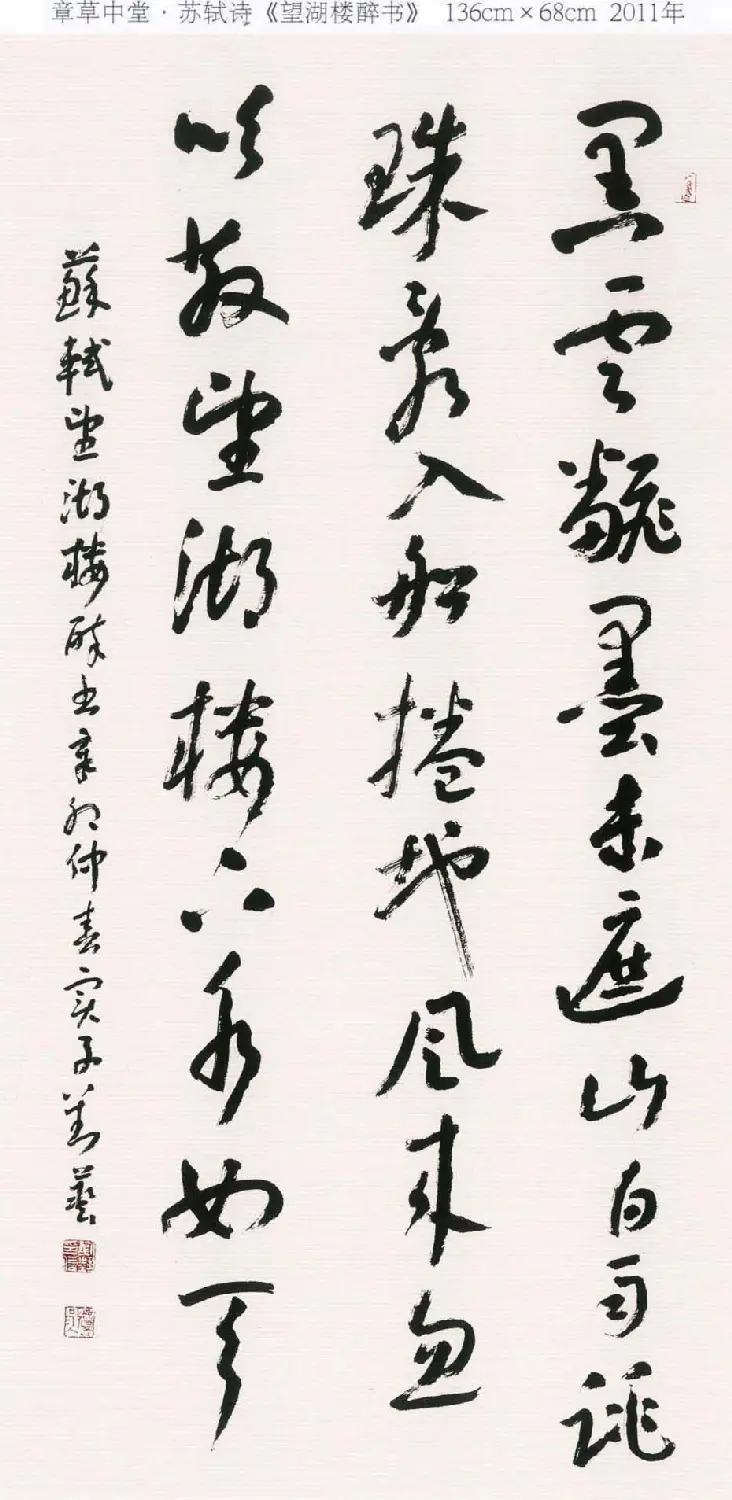 章草中堂·苏轼诗《望湖楼醉书》 136cm×68cm 2011年
黑雲飜墨未遮山白雨跳
珠亂入船捲地風来忽
吹散望湖樓下水如天
蘇軾望湖樓醉书辛卯仲春劉藝